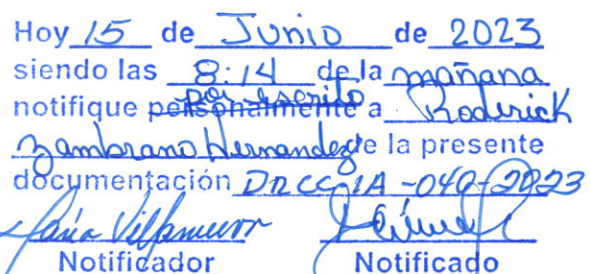 Hoy 15 de Junio de 2023
siendo las 8:14 de la mañana
por escrito
notifique personalmente a Roderick
Zambrano Hernandez de la presente
documentación DRCC-IA-040-2023
María Villanueva
Notificador Notificado